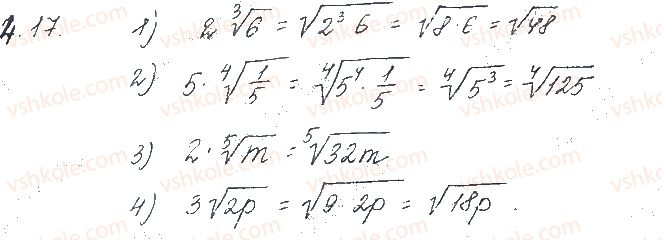 4.17. 1) 2∛6 = √(2³ 6) = √(8·6) = √48
2) 5·⁴√(1/5) = ⁴√(5⁴·1/5) = ⁴√(5³) = ⁴√125
3) 2·⁵√m = ⁵√(32m)
4) 3√(2p) = √(9·2p) = √(18p).
vshkole.com vshkole.com vshkole.com